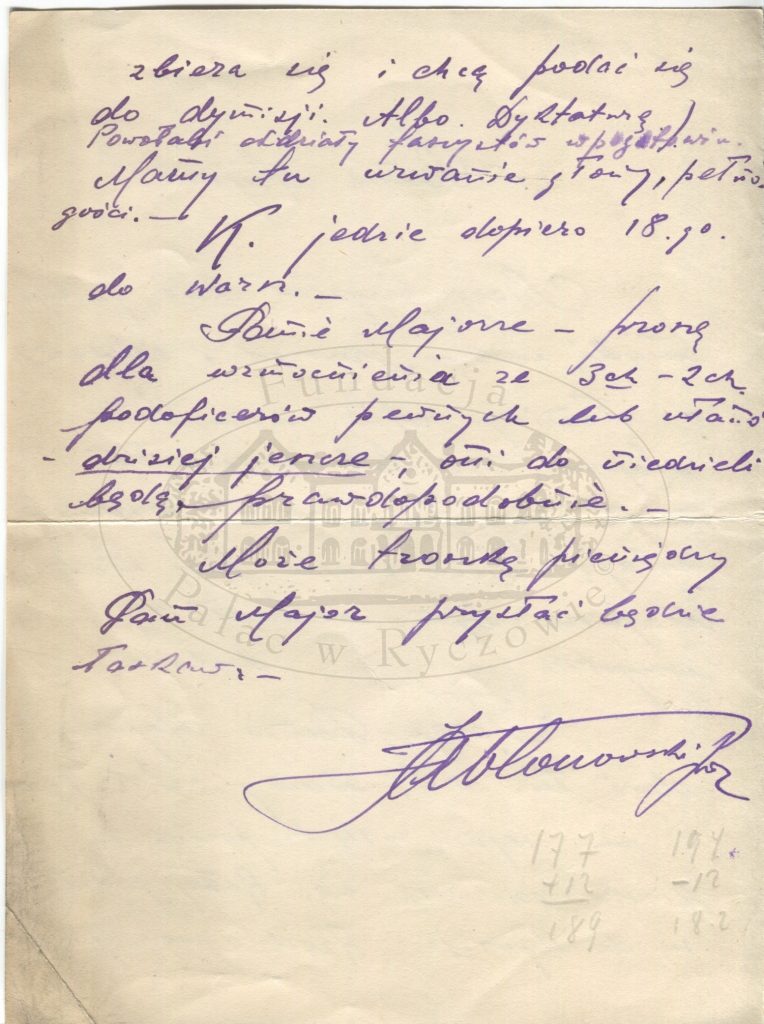 zbiera się i chcą podać się
do dymisji. Albo. Dyktaturę)
Powołali oddziały faszystów w pogotowiu.
Mamy tu urwanie głowy, pełno
gości. –
K. jedzie dopiero 18.go.
do Warsz. –
Panie Majorze – proszę
dla wzmocnienia ze 3ch – 2ch.
podoficerów pewnych lub ułanów
- dzisiej jeszcze –, oni do niedzieli
będą, prawdopodobnie. –
Może troszkę pieniędzy
Pan Major przysłać będzie
łaskaw. –
Jabłonowski por
177 194
+12 –12
189 182
Fundacja
Pałac w Ryczowie